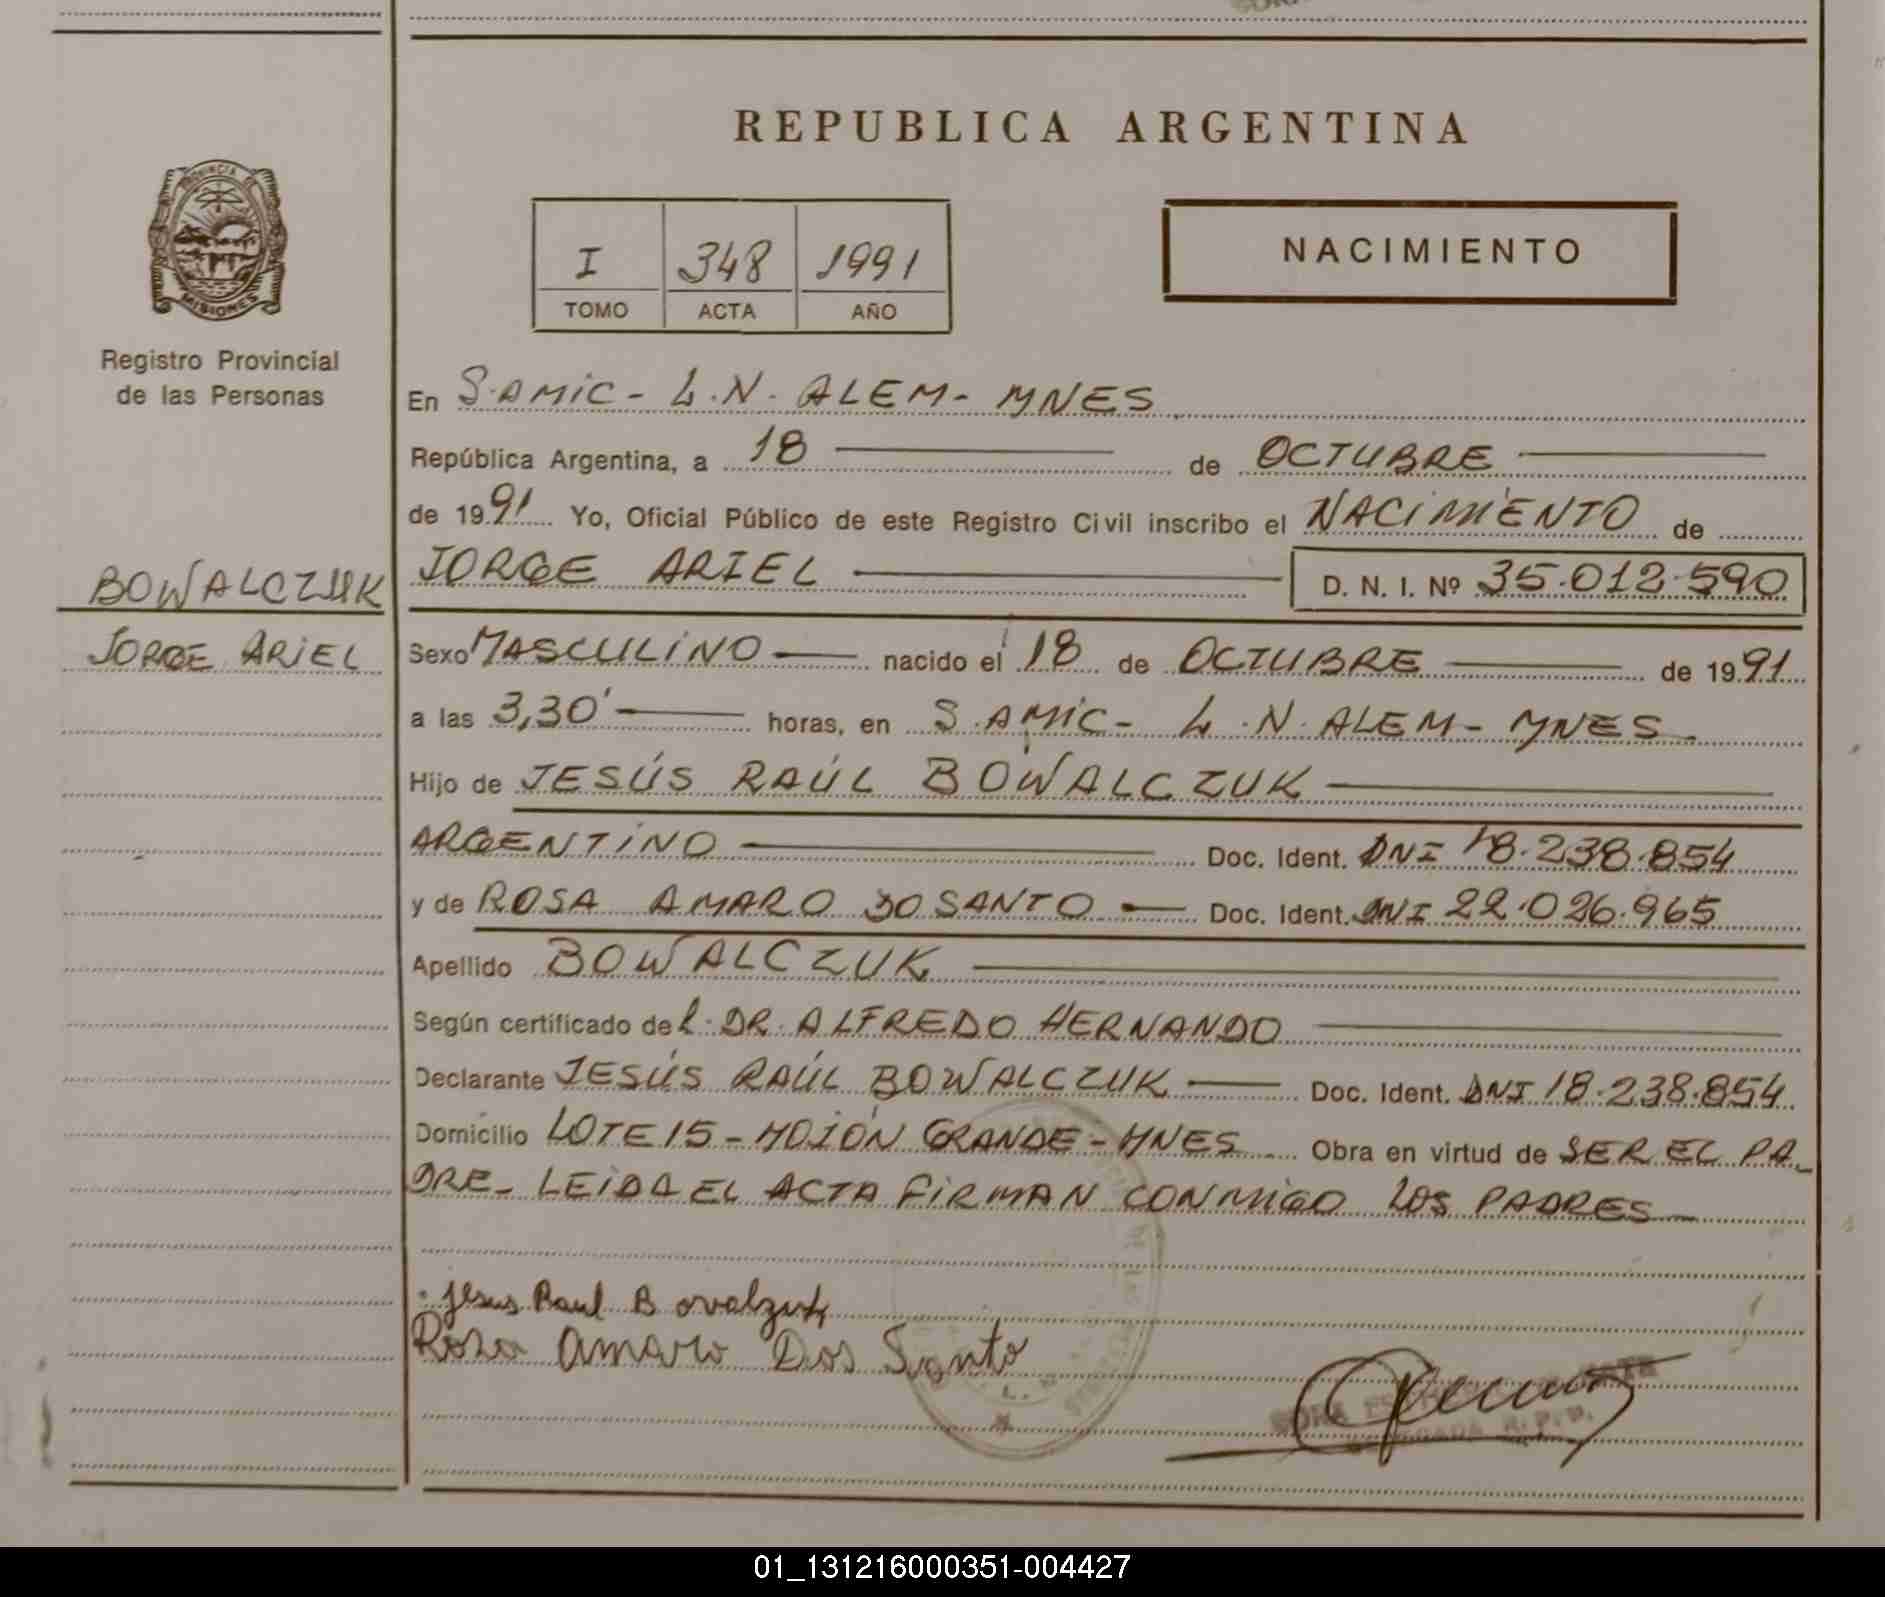 REPUBLICA ARGENTINA
PROVINCIA DE
MISIONES
Registro Provincial
de las Personas
I 348 1991
TOMO ACTA AÑO
NACIMIENTO
En S. AMIC - L.N. ALEM - MNES
República Argentina, a 18 de OCTUBRE
de 1991 Yo, Oficial Público de este Registro Civil inscribo el NACIMIENTO de
BOWALCZUK
JORGE ARIEL
JORGE ARIEL D. N. I. Nº 35.012.590
Sexo MASCULINO nacido el 18 de OCTUBRE de 1991
a las 3,30' horas, en S. AMIC - L.N. ALEM - MNES
Hijo de JESÚS RAÚL BOWALCZUK
ARGENTINO Doc. Ident. DNI 18.238.854
y de ROSA AMARO DO SANTO Doc. Ident. DNI 22.026.965
Apellido BOWALCZUK
Según certificado del DR. ALFREDO HERNANDO
Declarante JESÚS RAÚL BOWALCZUK Doc. Ident. DNI 18.238.854
Domicilio LOTE 15 - MOJÓN GRANDE - MNES Obra en virtud de SER EL PA-
DRE - LEIDA EL ACTA FIRMAN CONMIGO LOS PADRES
Jesus Raul Bovalzuk
Rosa Amaro Dos Santo
01_131216000351-004427